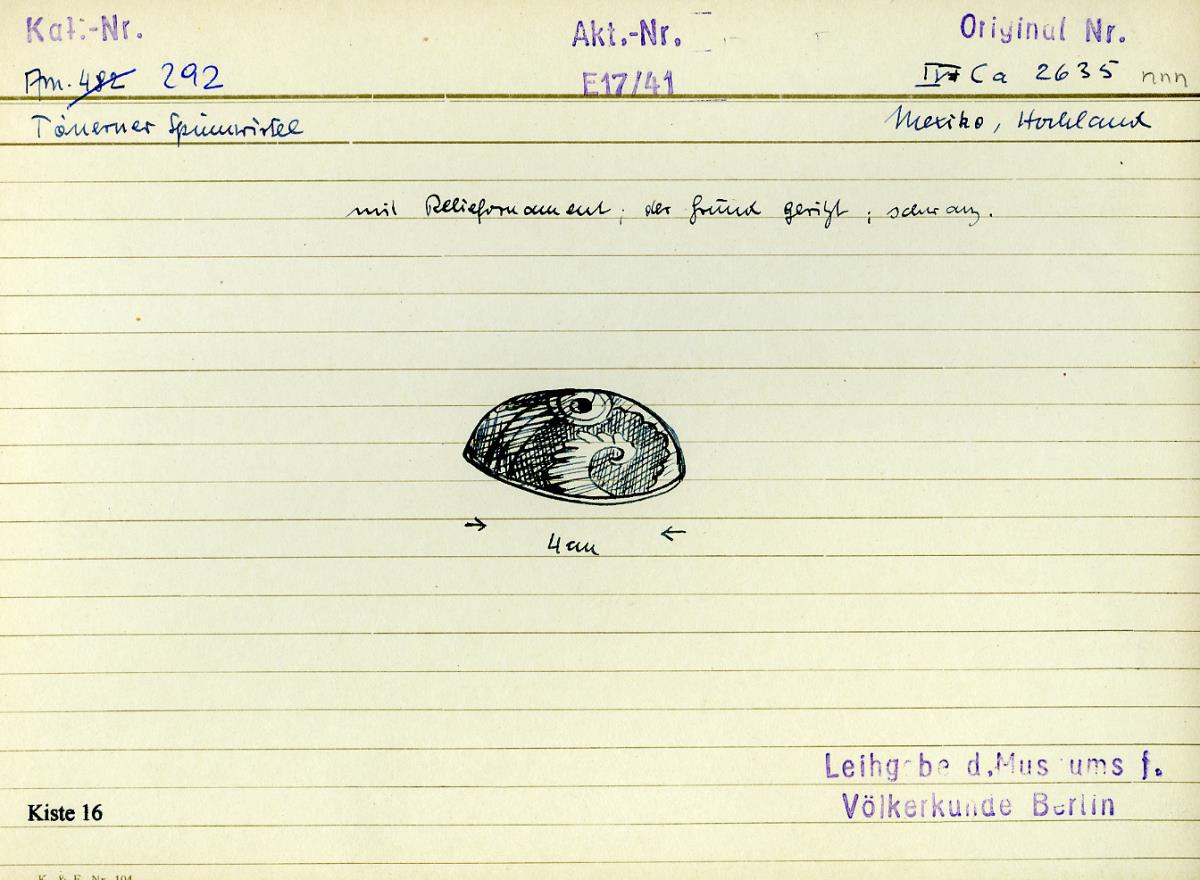 Kat.-Nr. Akt.-Nr. Original Nr.
Am. 482 292 E17/41 IV Ca 2635 nnn
Tönerner Spinnwirtel Mexiko, Hochland
mit Reliefornament; der Grund geritzt; schwarz.
4 cm
Leihgabe d. Museums f.
Kiste 16 Völkerkunde Berlin
K. & E. Nr. 104